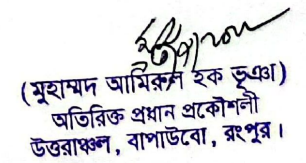 (মুহাম্মদ আমিরুল হক ভূঞা)
অতিরিক্ত প্রধান প্রকৌশলী
উত্তরাঞ্চল, বাপাউবো, রংপুর।